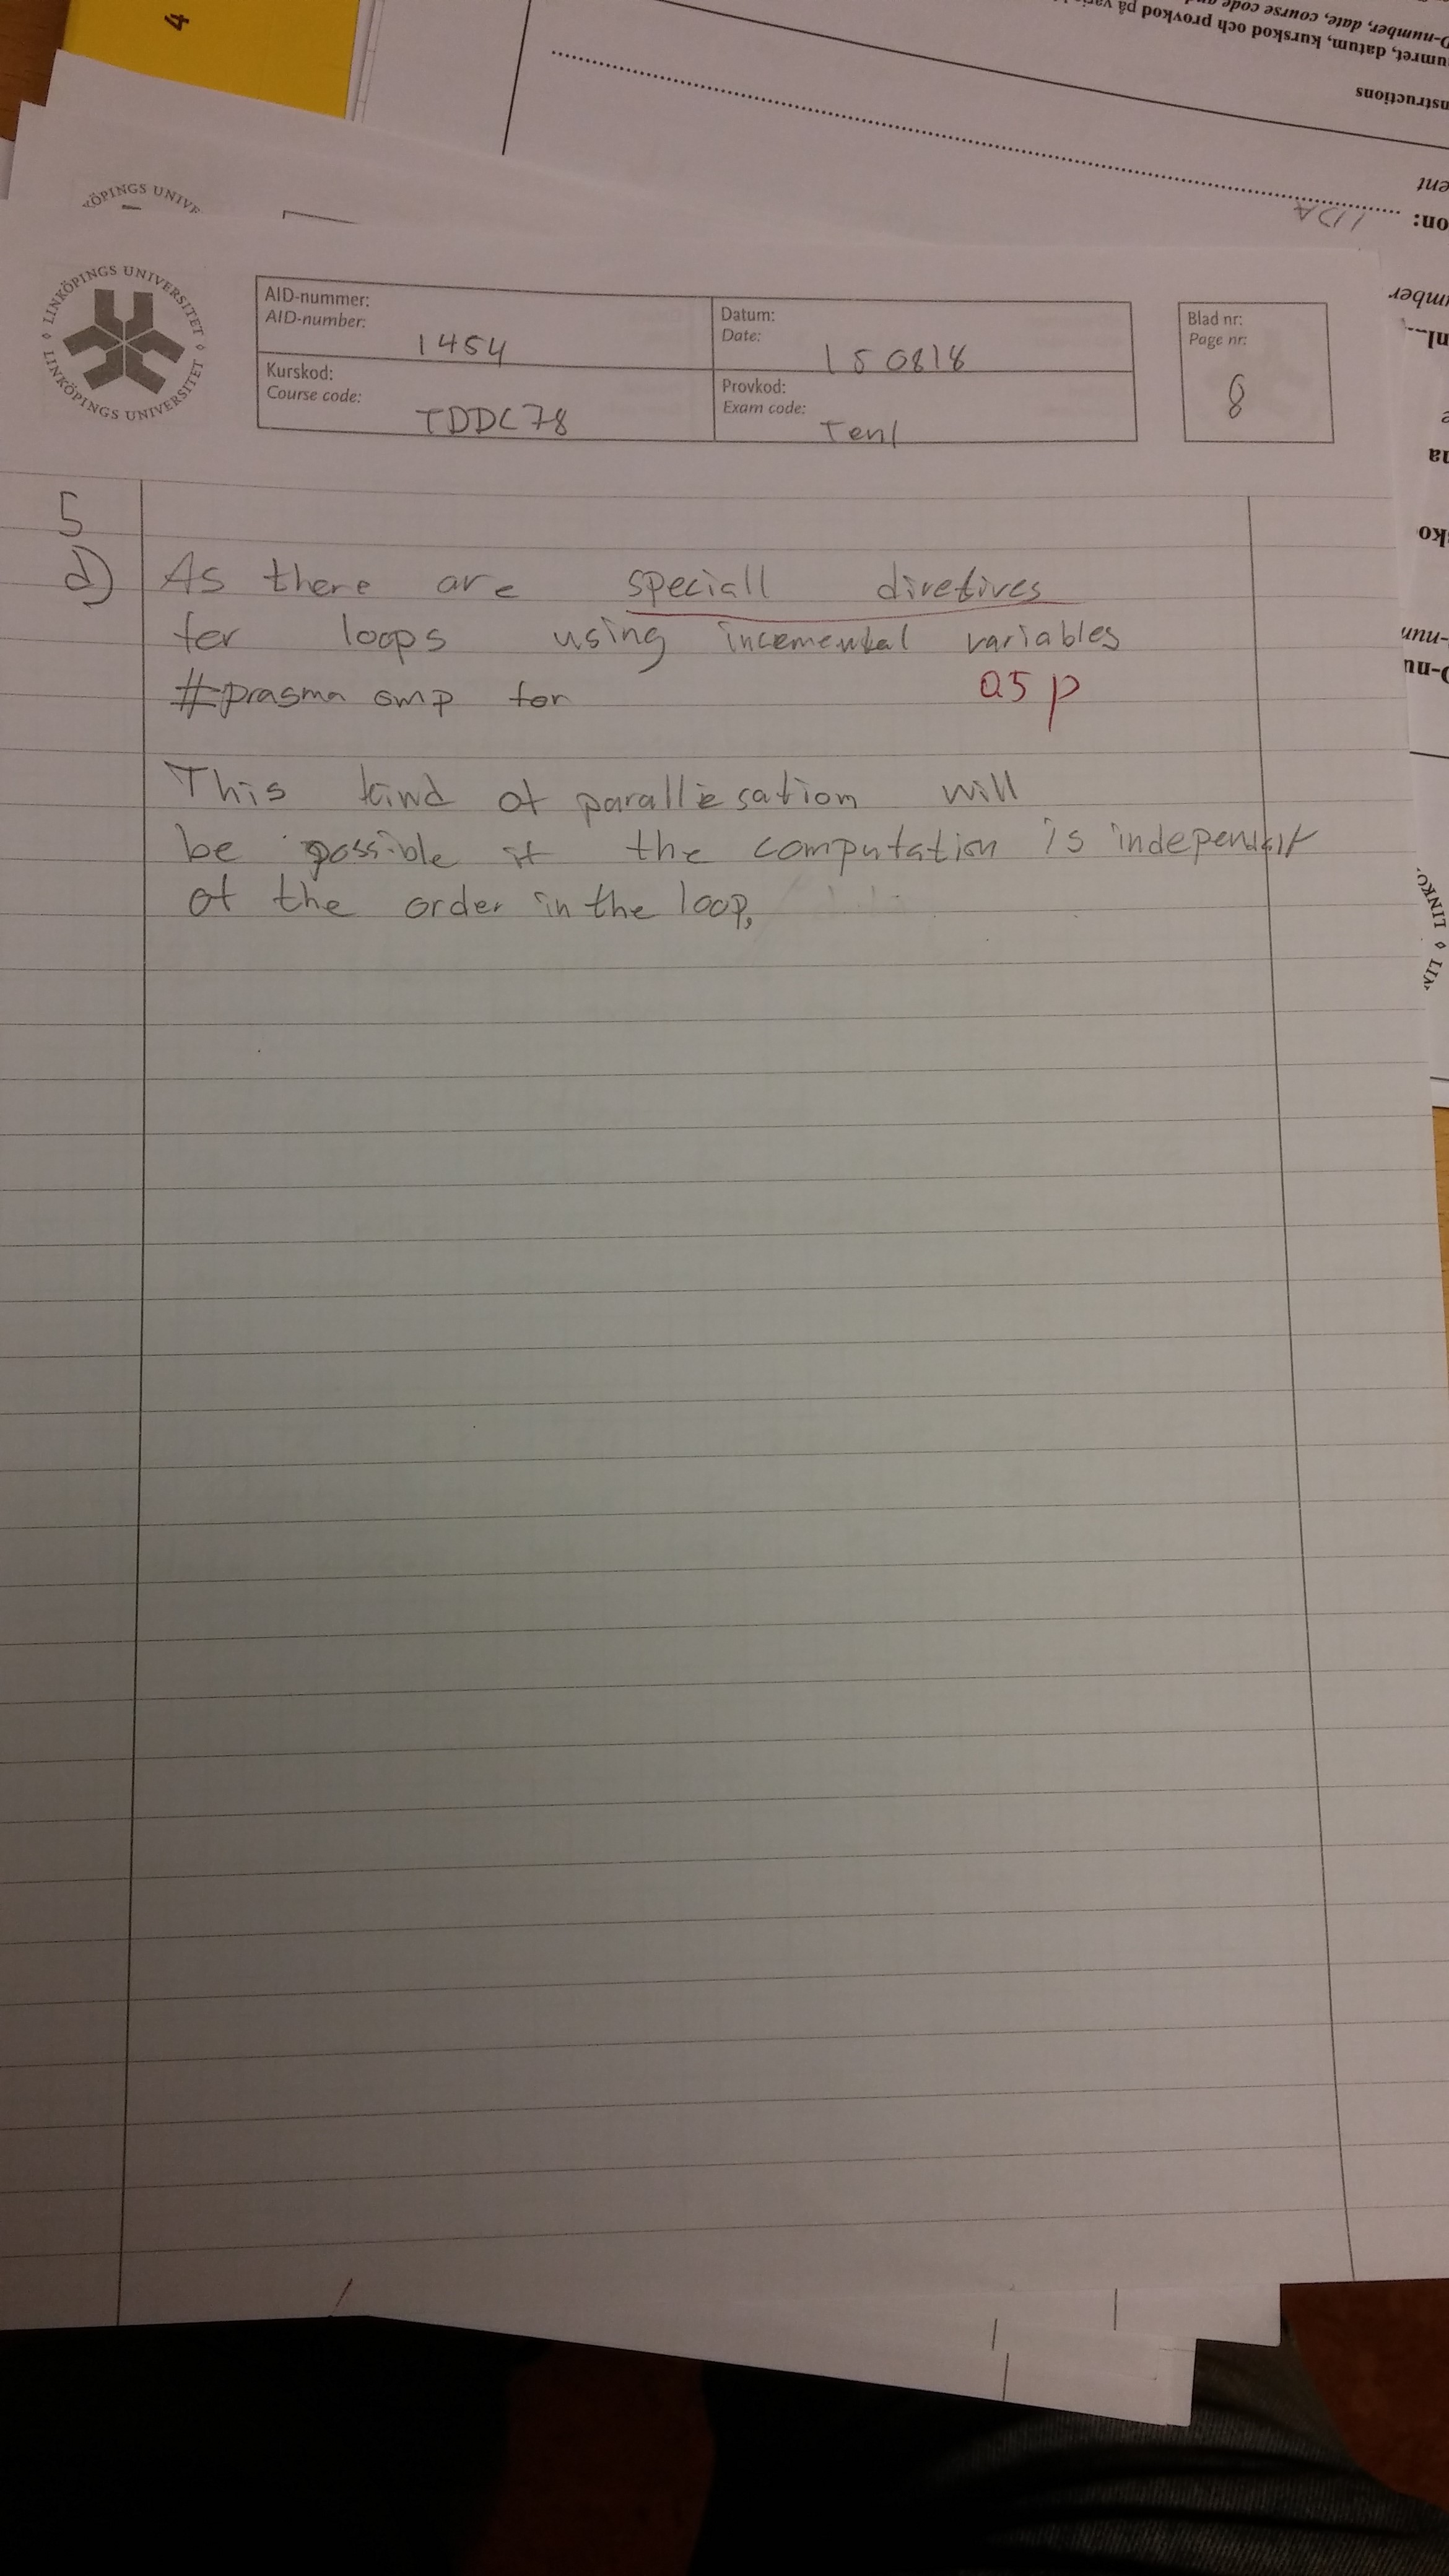 4
D-number, date, course code and
umret, datum, kurskod och provkod på
nstructions
ent
on:
IDA
KÖPINGS UNIVE
LINKÖPINGS UNIVERSITET ◊ LINKÖPINGS UNIVERSITET ◊
AID-nummer:
AID-number:
1454
Datum:
Date:
150818
Blad nr:
Page nr:
8
Kurskod:
Course code:
TDDC78
Provkod:
Exam code:
Ten1
5
d) As there are speciall diretives
for loops using incemental variables
#prasma omp for
0.5 p
This kind of parallesation will
be possible if the computation is independent
of the order in the loop.